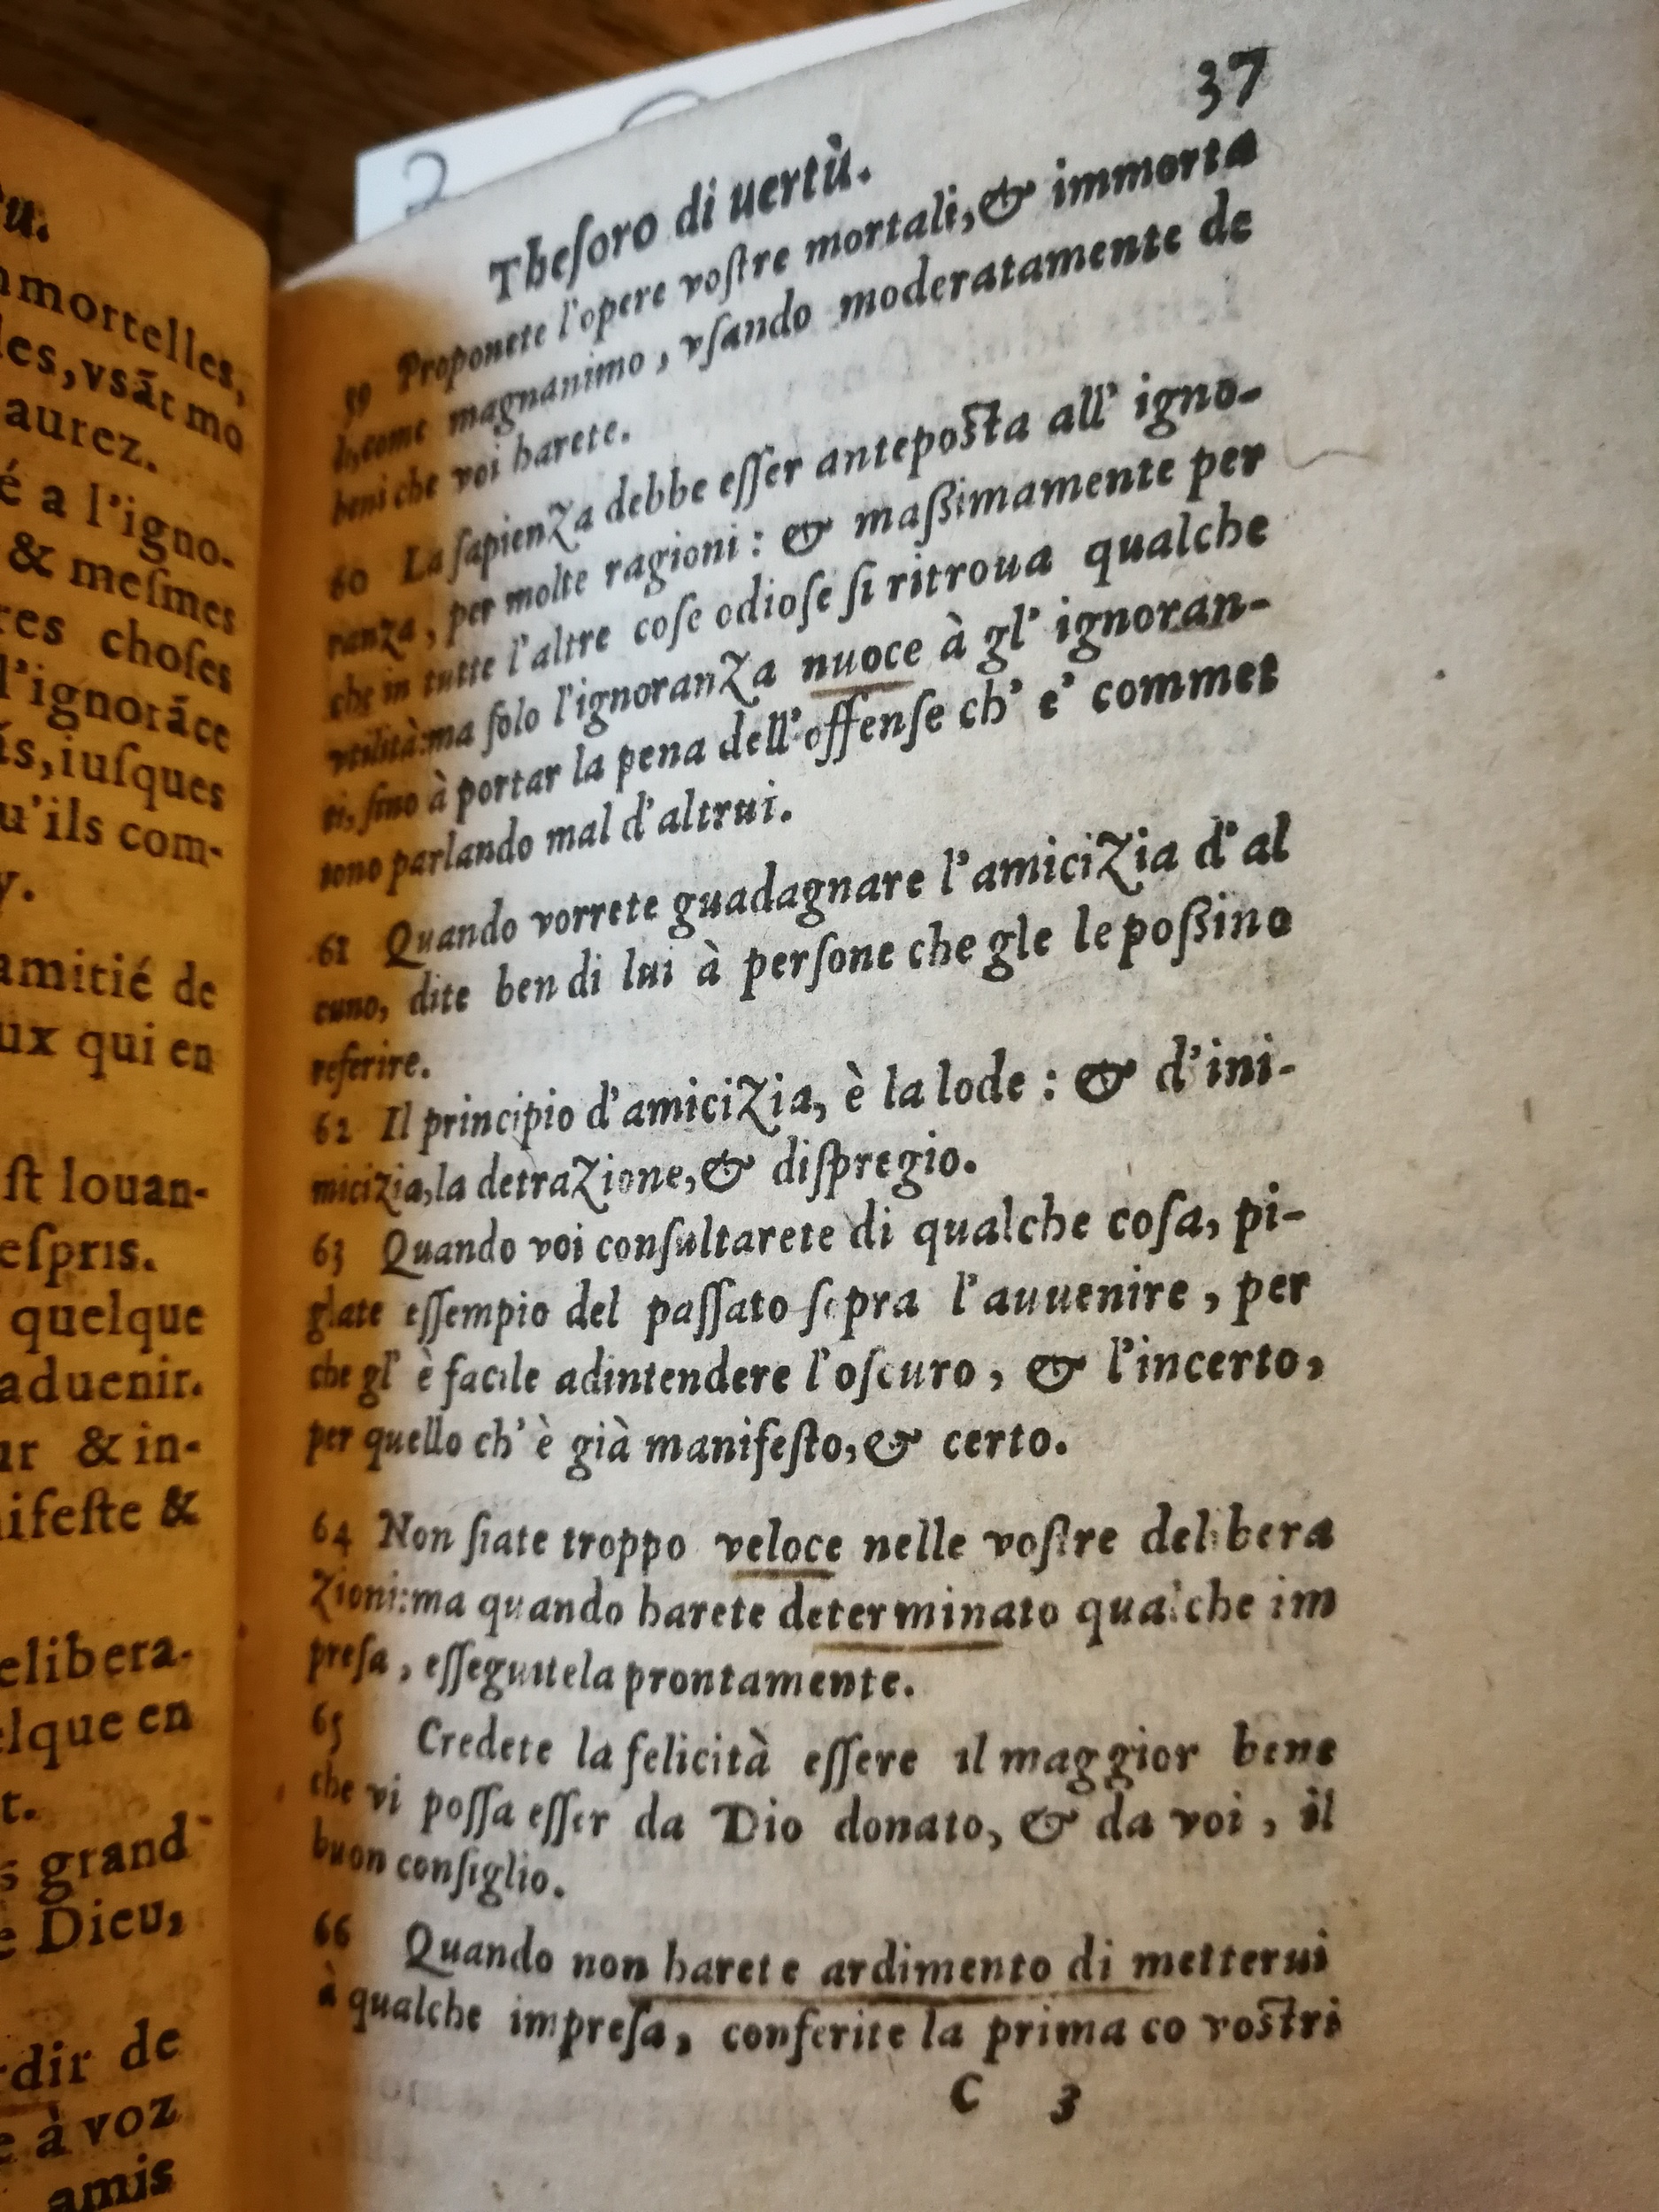 u.
mmortelles,
les, vsãt mo
aurez.
é a l'igno-
& meſmes
res choſes
l'ignorãce
ts, iuſques
u'ils com-
y.
amitié de
ux qui en
ſt louan-
eſpris.
quelque
aduenir.
ur & in-
nifeſte &
elibera-
elque en
t.
s grand
e Dieu,
rdir de
e à voz
amis
37
Theſoro di uertù.
59 Proponete l'opere voſtre mortali, & immorta
li, come magnanimo, vſando moderatamente de
beni che voi harete.
60 La ſapienza debbe eſſer antepoſta all' igno-
ranza, per molte ragioni: & maſſimamente per
che in tutte l'altre coſe odioſe ſi ritroua qualche
vtilità: ma ſolo l'ignoranza nuoce à gl' ignoran-
ti, ſino à portar la pena dell'offenſe ch' e' commet
tono parlando mal d'altrui.
61 Quando vorrete guadagnare l'amicizia d'al
cuno, dite ben di lui à perſone che gle le poſſino
referire.
62 Il principio d'amicizia, è la lode: & d'ini-
micizia, la detrazione, & diſpregio.
63 Quando voi conſultarete di qualche coſa, pi-
glate eſſempio del paſſato ſopra l'auuenire, per
che gl' è facile adintendere l'oſcuro, & l'incerto,
per quello ch' è già manifeſto, & certo.
64 Non ſiate troppo veloce nelle voſtre delibera
zioni: ma quando harete determinato qualche im
preſa, eſſeguitela prontamente.
65 Credete la felicità eſſere il maggior bene
che vi poſſa eſſer da Dio donato, & da voi, il
buon conſiglio.
66 Quando non harete ardimento di metterui
à qualche impreſa, conferite la prima co voſtri
C 3